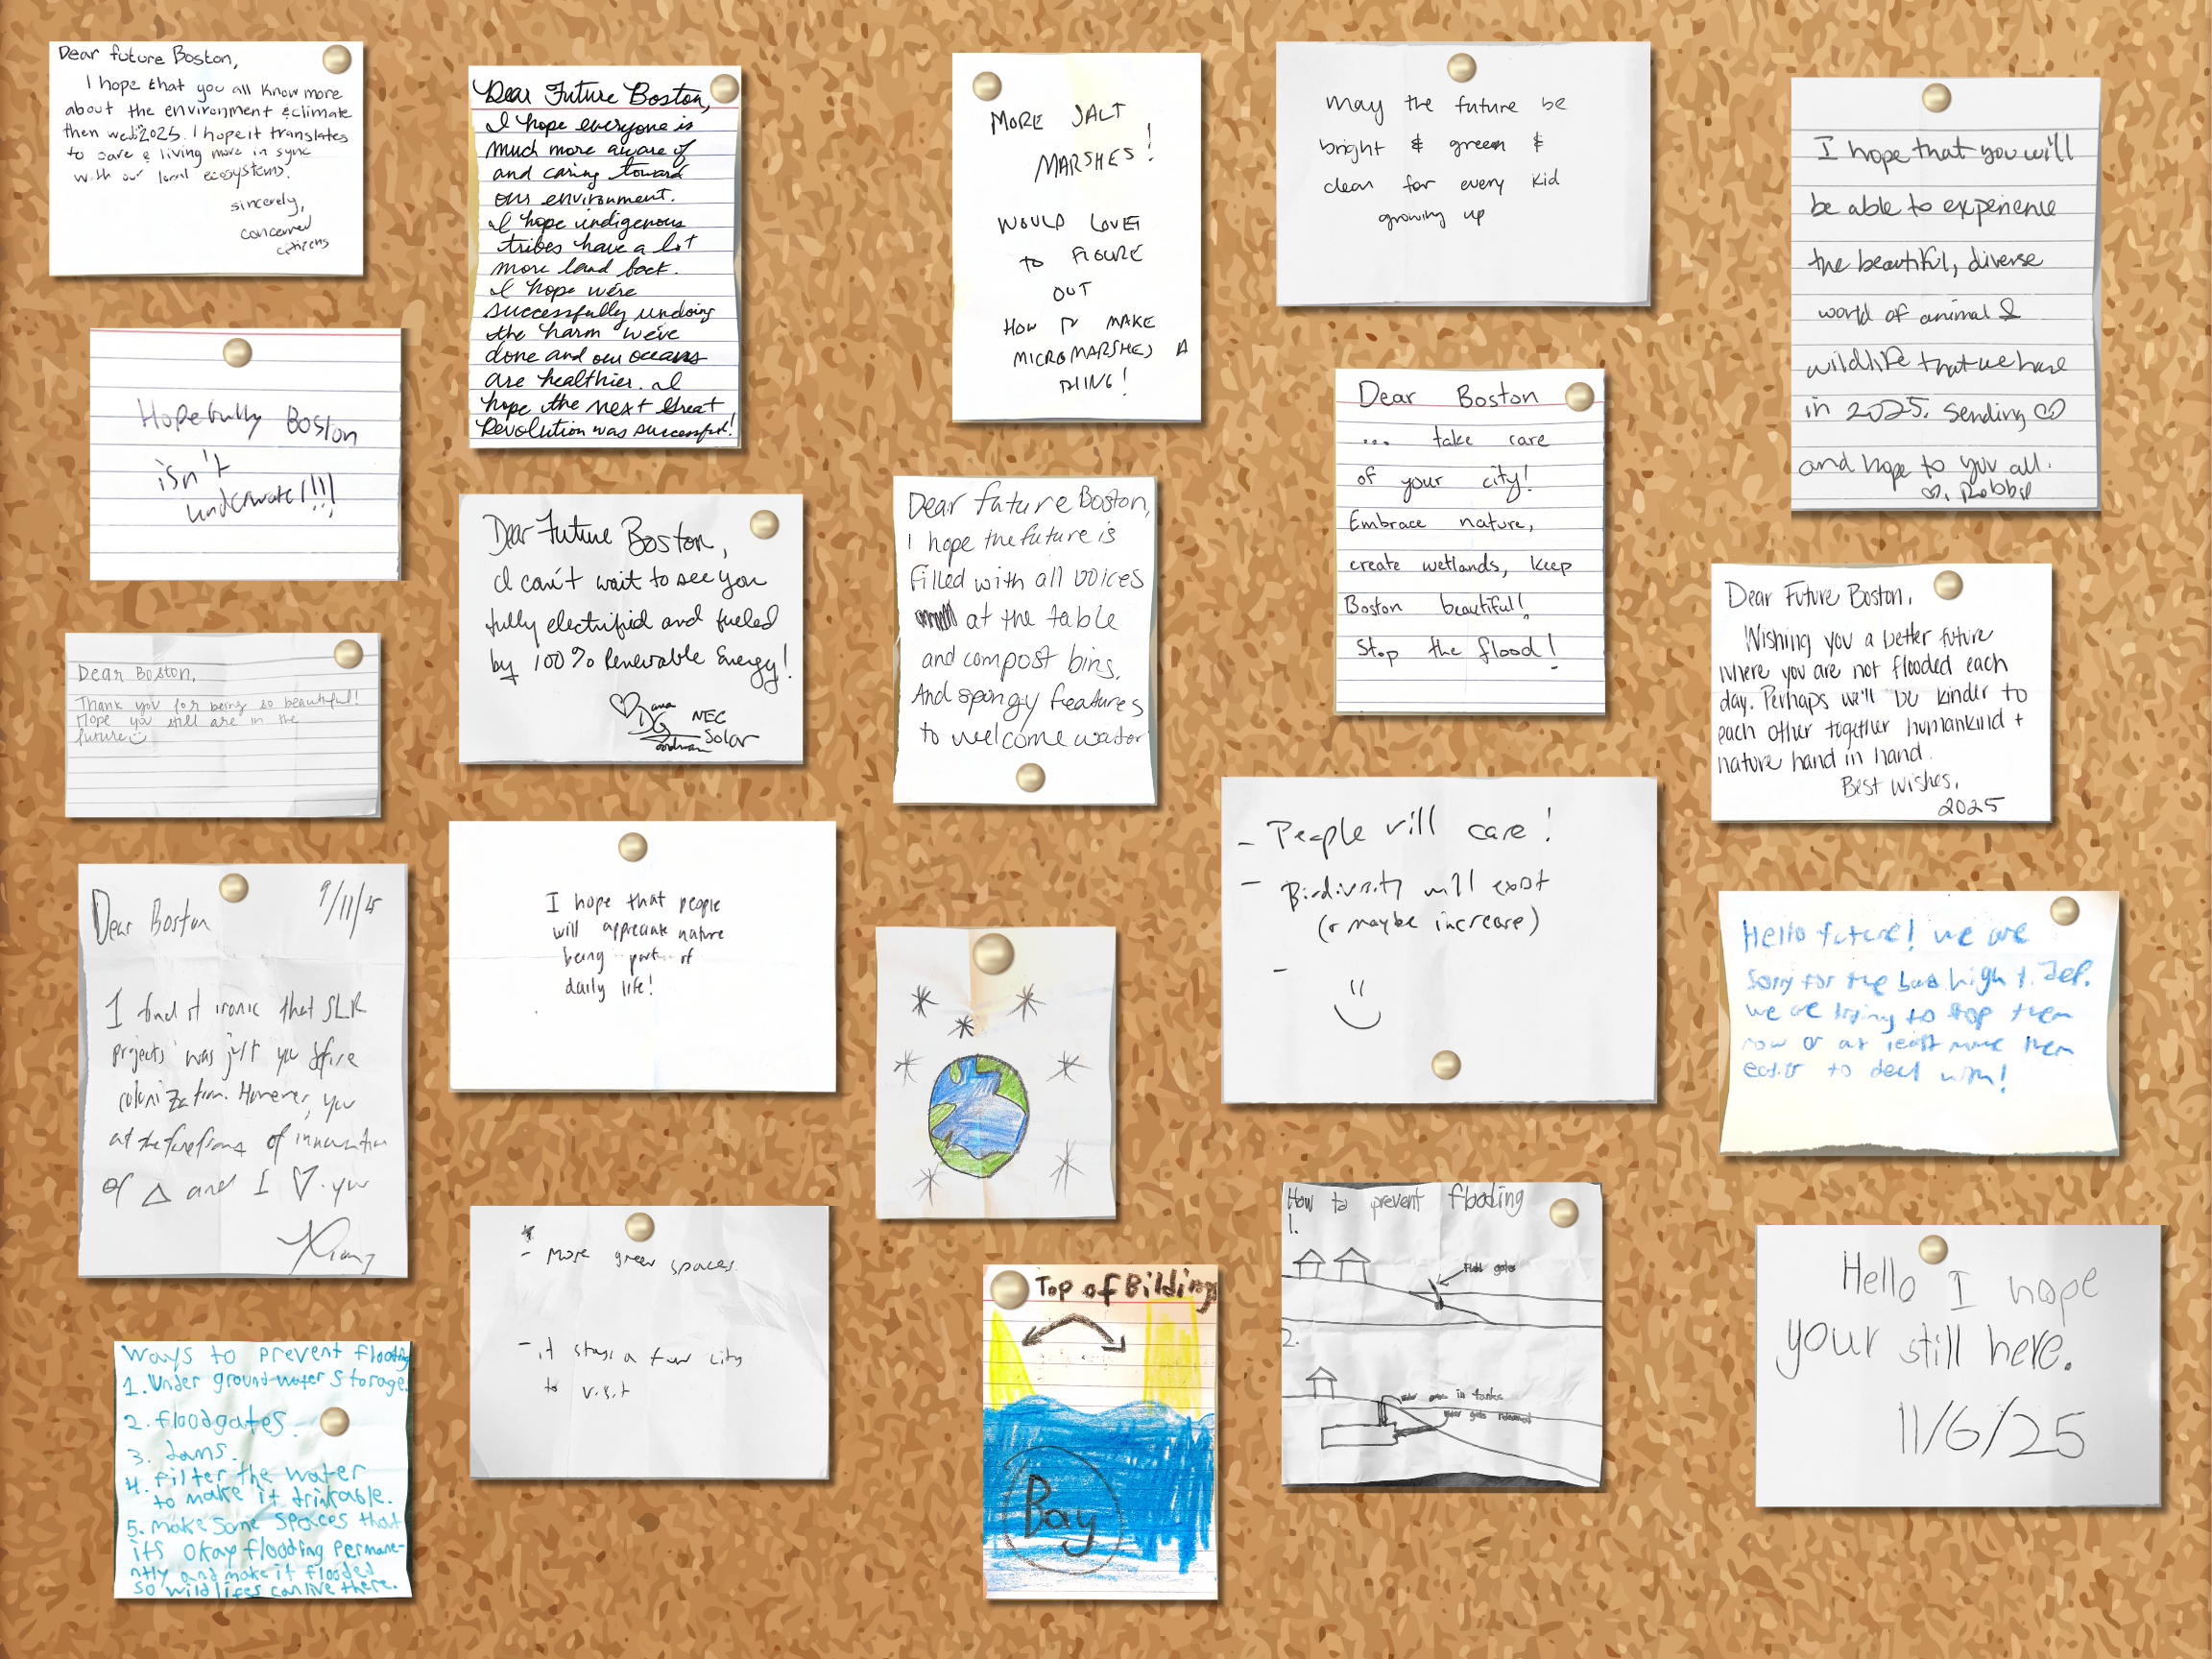 Dear future Boston,
I hope that you all know more
about the environment & climate
then we in 2025. I hope it translates
to care & living more in sync
with our local ecosystems.
sincerely,
concerned
citizens
Dear Future Boston,
I hope everyone is
much more aware of
and caring toward
our environment.
I hope indigenous
tribes have a lot
more land back.
I hope we're
successfully undoing
the harm we've
done and our oceans
are healthier. I
hope the next Great
Revolution was successful!
MORE SALT
MARSHES!
WOULD LOVE
TO FIGURE
OUT
HOW TO MAKE
MICROMARSHES A
THING!
May the future be
bright & green &
clean for every kid
growing up
I hope that you will
be able to experience
the beautiful, diverse
world of animal &
wildlife that we have
in 2025. Sending ♡
and hope to you all.
♡, Robbie
Hopefully Boston
isn't
underwater!!!
Dear Future Boston,
I can't wait to see you
fully electrified and fueled
by 100% Renewable Energy!
♡ Dana
Goodman
NEC
Solar
Dear future Boston,
I hope the future is
filled with all voices
at the table
and compost bins.
And spongy features
to welcome water
Dear Boston
... take care
of your city!
Embrace nature,
create wetlands, keep
Boston beautiful!
Stop the flood!
Dear Future Boston,
Wishing you a better future
where you are not flooded each
day. Perhaps we'll be kinder to
each other together humankind +
nature hand in hand.
Best Wishes,
2025
Dear Boston,
Thank you for being so beautiful!
Hope you still are in the
future
Dear Boston 9/11/25
I find it ironic that SLR
projects was just you
colonization. However, you
at the forefront of innovation
of △ and I ♡ you
I hope that people
will appreciate nature
being part of
daily life!
- People will care!
- Biodiversity will exist
(or maybe increase)
-
Hello future! we are
Sorry for the bad high t.
we are trying to stop them
now or at least make them
easier to deal with!
- More green spaces
- it stays a fun city
to visit
Top of Bilding
Bay
How to prevent flooding
1.
Flood gates
2.
water goes in tanks
water gets released
Hello I hope
your still here.
11/6/25
Ways to prevent flooding
1. Under ground water storage.
2. floodgates.
3. Dams.
4. Filter the water
to make it drinkable.
5. Make some spaces that
its okay flooding permane-
ntly and make it flooded
so wild lifes can live there.